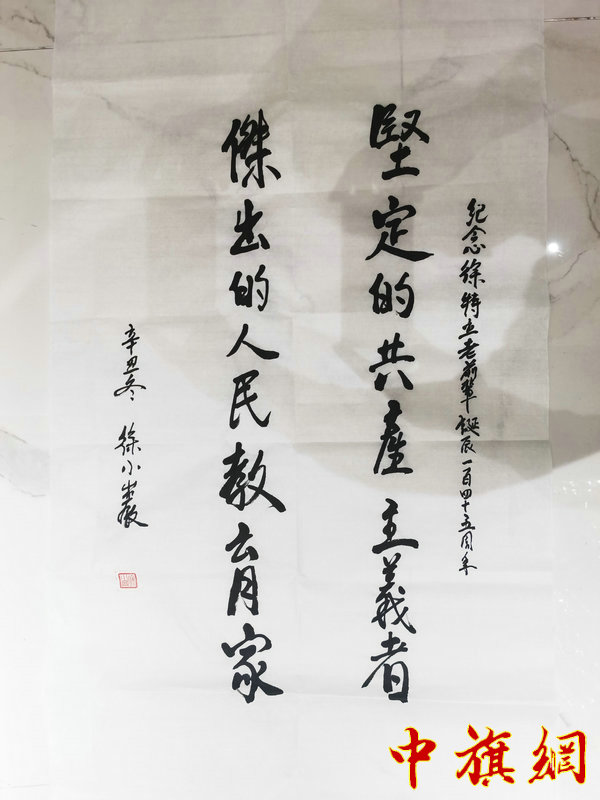 紀念徐特立老前輩誕辰一百四十五周年
堅定的共產主義者
傑出的人民教育家
辛丑冬 徐小岩敬
中旗網